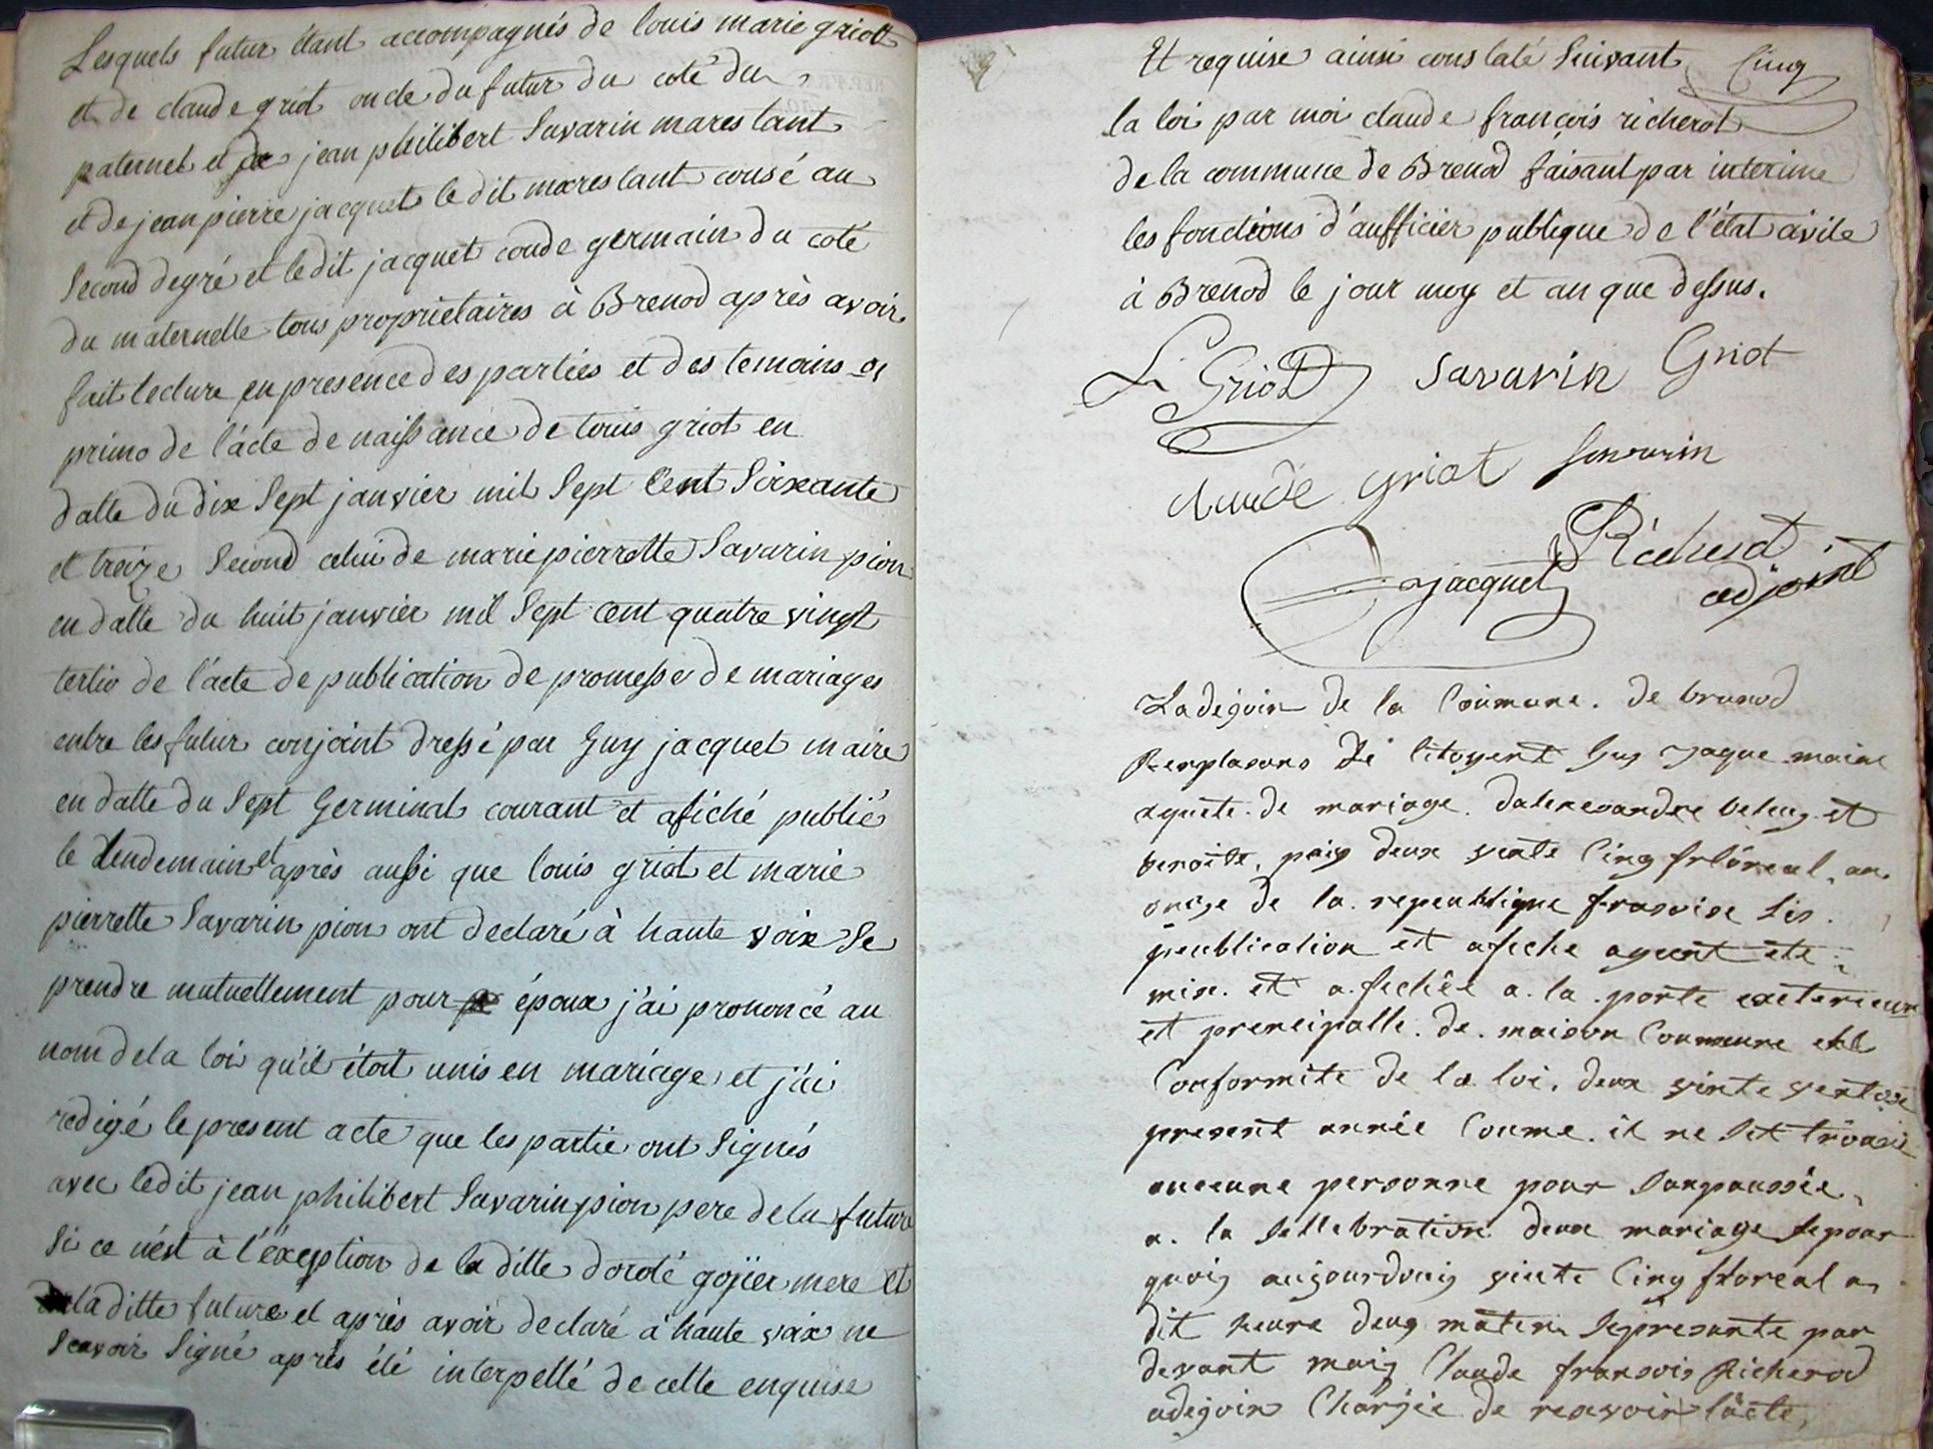 Lesquels futur étant accompagnés de louis marie griot
et de claude griot oncle du futur du coté du
paternel et de jean philibert Savarin marestant
et de jean pierre jacquet le dit marestant cousé au
Second degré et le dit jacquet coude germain du coté
du maternelle tous propriétaires à Brenod après avoir
fait lecture en presence des parties et des temoins
primo de l'acte de naissance de louis griot en
datte du dix Sept janvier mil Sept Cent Soixante
et treize Second celui de marie pierrette Savarin pion
en datte du huit janvier mil Sept cent quatre vingt
tertio de l'acte de publication de promesse de mariages
entre les futur conjoint dressé par Guy jacquet maire
en datte du Sept Germinal courant et afiché publié
le lendemain et après aussi que louis griot et marie
pierrette Savarin pion ont declaré à haute voix Se
prendre mutuellement pour époux j'ai prononcé au
nom de la loi qu'il étoit unis en mariage et j'ai
redigé le present acte que les partie ont Signés
avec ledit jean philibert Savarin pion pere de la future
Si ce n'est à l'éxeption de la ditte dorote gojier mere et
la ditte future et après avoir declaré à haute voix ne
Scavoir Signé après été interpellé de cette enquise
Et requise ainsi constaté Suivant Cinq
la loi par moi claude françois richerot
de la commune de Brenod faisant par interime
les fonctions d'aufficier publique de l'état civile
à Brenod le jour moy et an que dessus.
L Griot Savarin Griot
claude griot Savarin
jacquet Richerot
adjoint
Ladejoin de la Coumune. de brenod
Remplasans de Citoyent Guy Jaque maire
aquete de mariage. dalexsandre beleug et
benoite. puig deux vente Cinq floréal, an.
onze de la. republique fransoise Lis.
publication et afiche ayent ete
mise. et afichée a. la. porte exterieure
et prencipalle. de. maison Coumune
Conformite de la loi, deux vinte ventose
present année Coume. it ne Set trouvé
aucune personne pour Sanpaussée,
a. la Sellebration deux mariage Sepour
quoig aujourdouig vinte Cinq floreal a
dit heure deug maten Sepresante par
devant moig Claude fransois Richerod
adejoin Chargée de resevoir lacte,